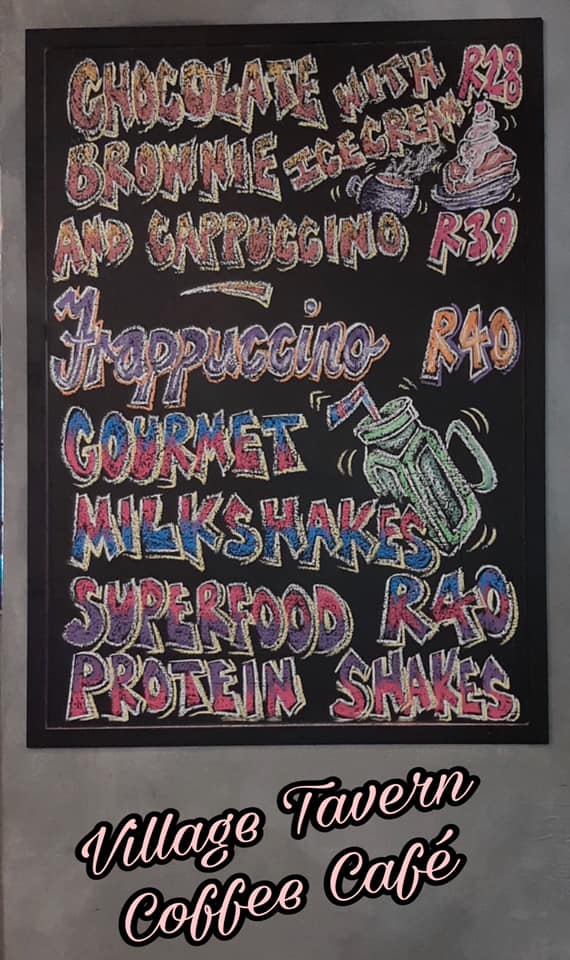 CHOCOLATE WITH R28
BROWNIE ICE CREAM
AND CAPPUCCINO R39
Frappuccino R40
GOURMET
MILKSHAKES
SUPERFOOD R40
PROTEIN SHAKES
Village Tavern
Coffee Café